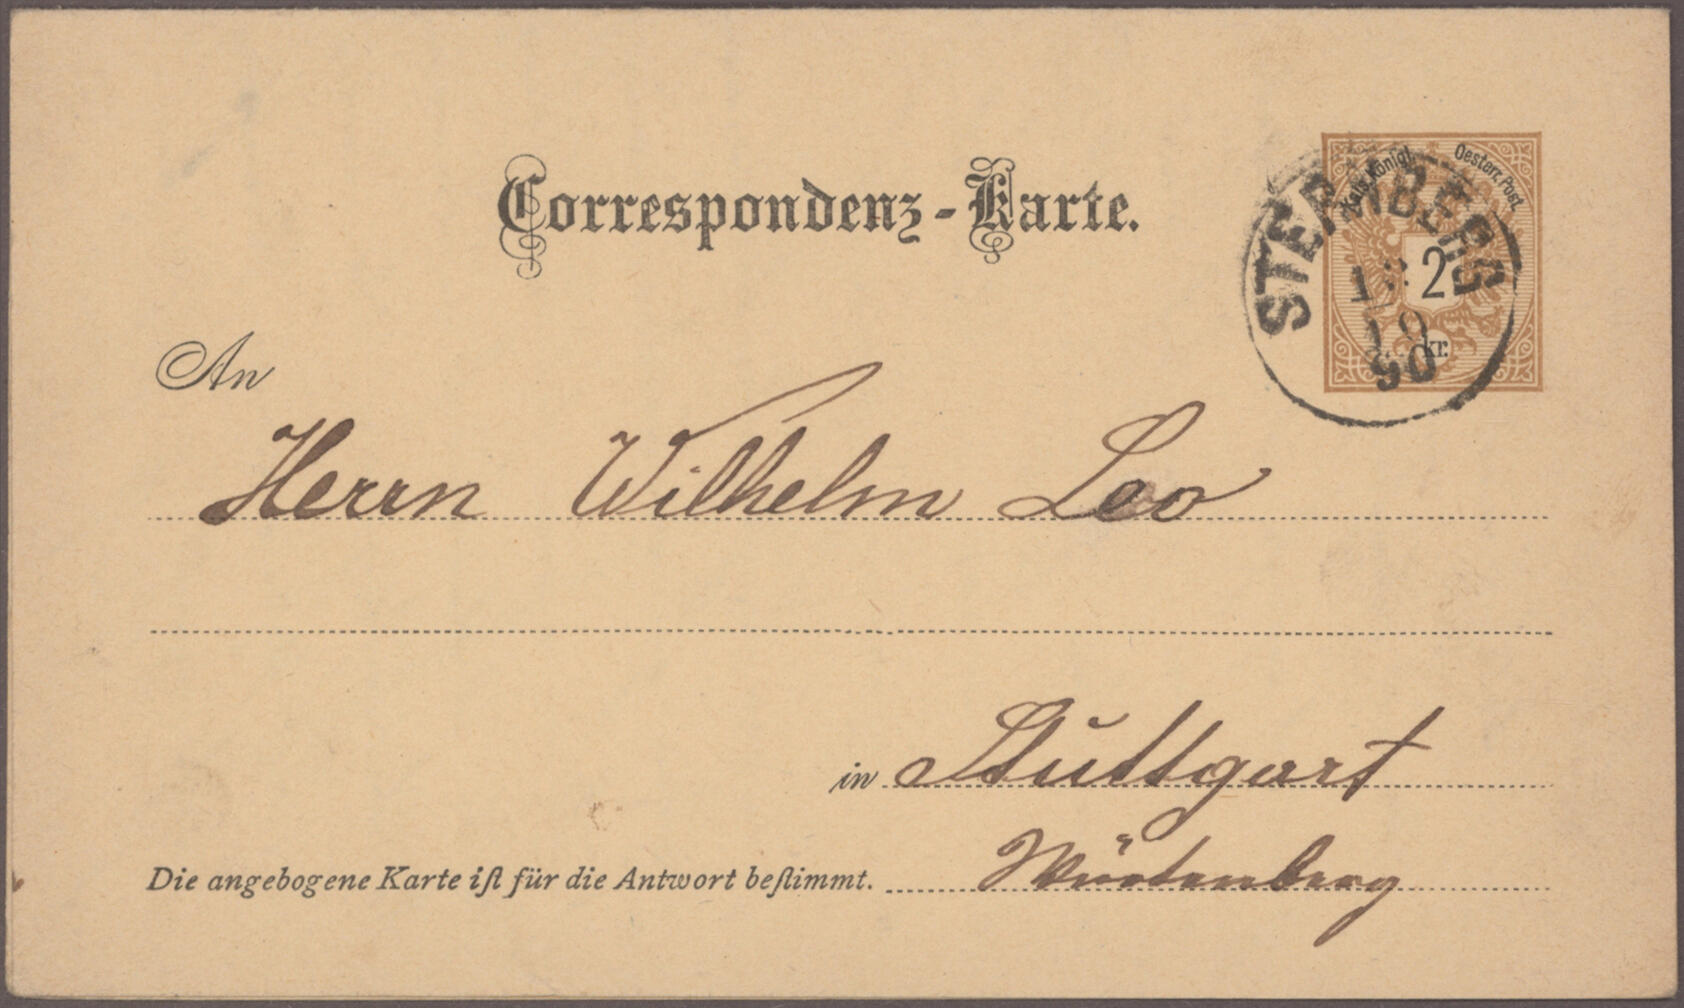 Correspondenz-Karte.
Kais. Königl. Oesterr. Post.
2
kr.
STERNBERG
90
An
Herrn Wilhelm Leo
in Stuttgart
Die angebogene Karte ist für die Antwort bestimmt. Würtenberg